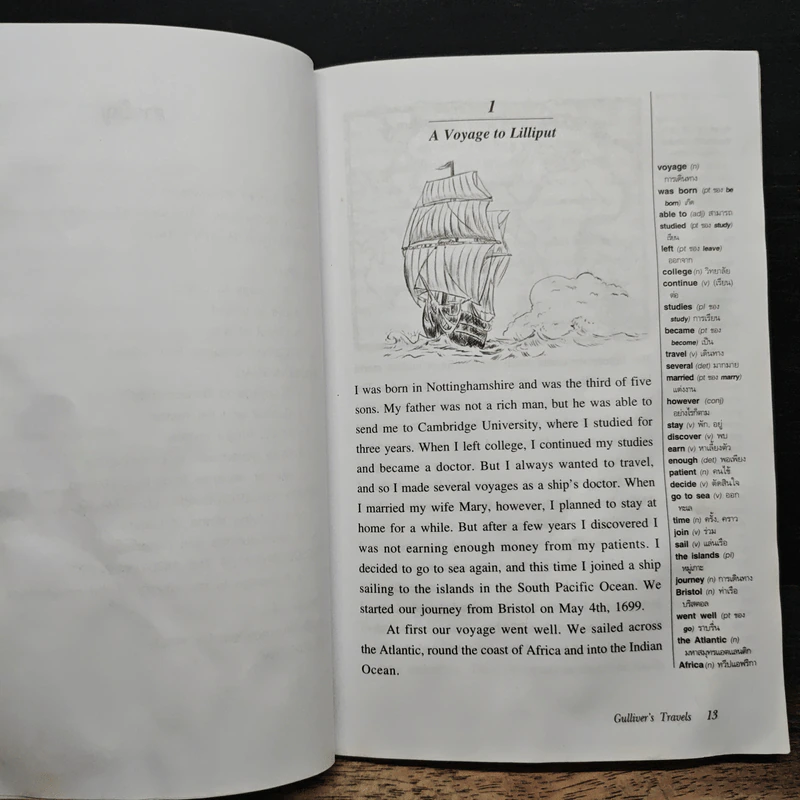 1
A Voyage to Lilliput
I was born in Nottinghamshire and was the third of five
sons. My father was not a rich man, but he was able to
send me to Cambridge University, where I studied for
three years. When I left college, I continued my studies
and became a doctor. But I always wanted to travel,
and so I made several voyages as a ship's doctor. When
I married my wife Mary, however, I planned to stay at
home for a while. But after a few years I discovered I
was not earning enough money from my patients. I
decided to go to sea again, and this time I joined a ship
sailing to the islands in the South Pacific Ocean. We
started our journey from Bristol on May 4th, 1699.
At first our voyage went well. We sailed across
the Atlantic, round the coast of Africa and into the Indian
Ocean.
voyage (n)
การเดินทาง
was born (pt ของ be
born) เกิด
able to (adj) สามารถ
studied (pt ของ study)
เรียน
left (pt ของ leave)
ออกจาก
college (n) วิทยาลัย
continue (v) (เรียน)
ต่อ
studies (pl ของ
study) การเรียน
became (pt ของ
become) เป็น
travel (v) เดินทาง
several (det) มากมาย
married (pt ของ marry)
แต่งงาน
however (conj)
อย่างไรก็ตาม
stay (v) พัก, อยู่
discover (v) พบ
earn (v) หาเลี้ยงตัว
enough (det) พอเพียง
patient (n) คนไข้
decide (v) ตัดสินใจ
go to sea (v) ออก
ทะเล
time (n) ครั้ง, คราว
join (v) ร่วม
sail (v) แล่นเรือ
the islands (pl)
หมู่เกาะ
journey (n) การเดินทาง
Bristol (n) ท่าเรือ
บริสตอล
went well (pt ของ
go) ราบรื่น
the Atlantic (n)
มหาสมุทรแอตแลนติก
Africa (n) ทวีปแอฟริกา
Gulliver's Travels 13